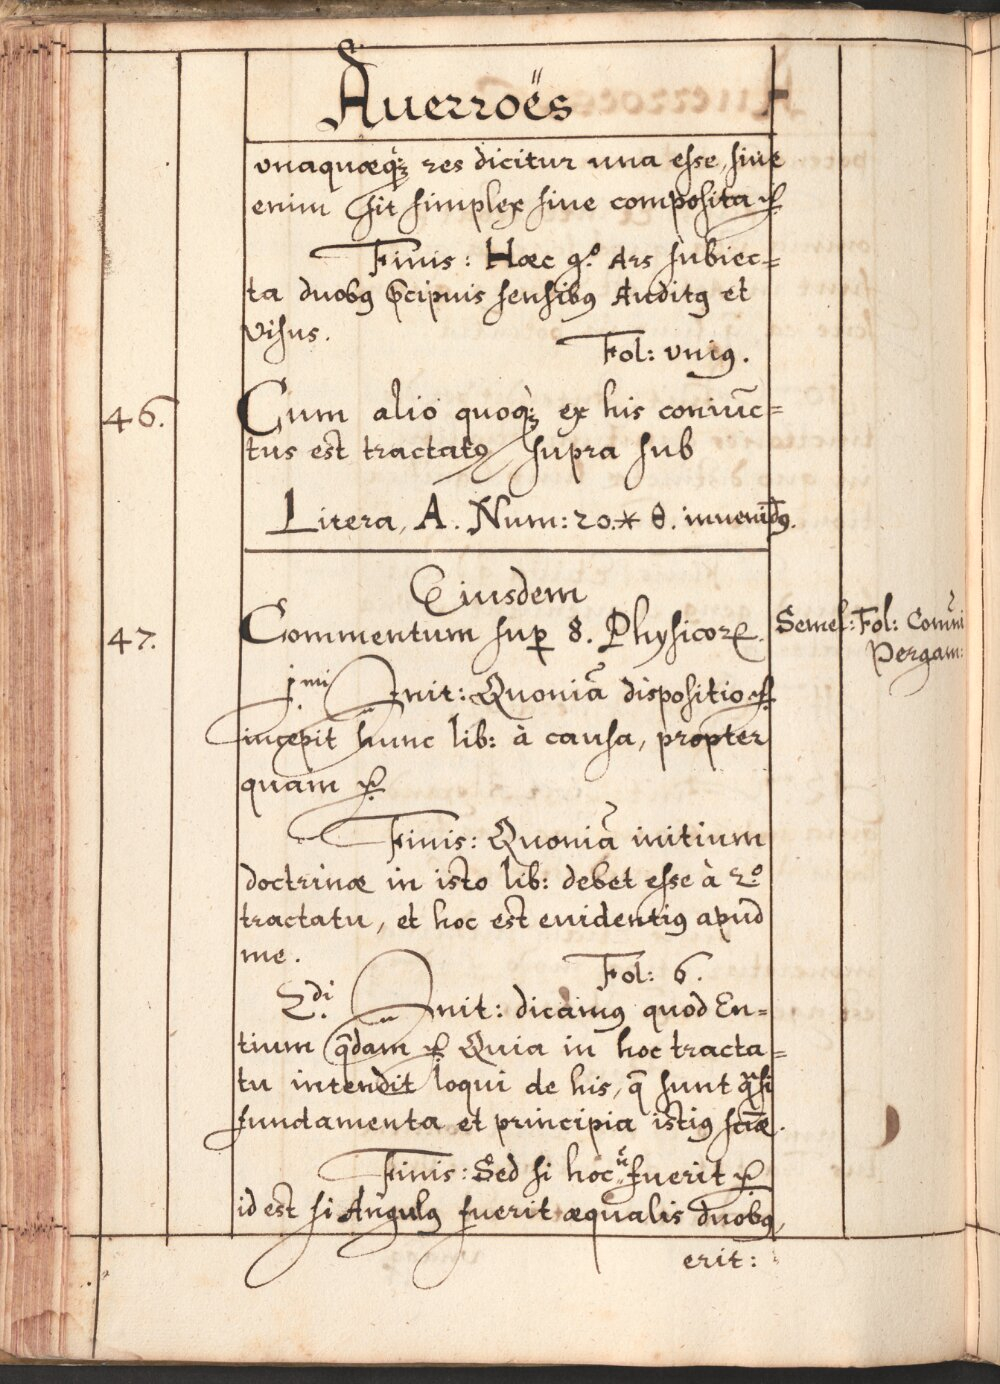 Auerroës
vnaquæq́ꝫ res dicitur una esse, siue
enim sit simplex siue composita ꝛc.
Finis: Hæc g.º Ars subiec=
ta duobꝰ p̄cipuis sensibꝰ Auditꝰ et
Visus.
Fol: vniꝰ.
46. Cum alio quoqꝫ ex his coniūc=
tus est tractatꝰ supra sub
Litera, A. Num: 20.* 8. inueniēdꝰ.
Eiusdem
47. Commentum sup̱ 8. Physicorꝝ.
Semel: Fol: Com̃ni
Pergam:
j.mi Init: Quoniã dispositio ꝛc.
incepit hunc lib: à causa, propter
quam ꝛc.
Finis: Quoniã initium
doctrinæ in isto lib: debet esse à 2.º
tractatu, et hoc est euidentiꝰ apud
me.
Fol: 6.
2.di Init: dicamꝰ quod En=
tium q̄dam ꝛc. Quia in hoc tracta=
tu intendit loqui de his, q̄ sunt qͣsi
fundamenta et principia istiꝰ sciǣ.
Finis: Sed si hoc fuerit ꝛc.
id est si Angulꝰ fuerit æqualis duobꝰ,
erit: